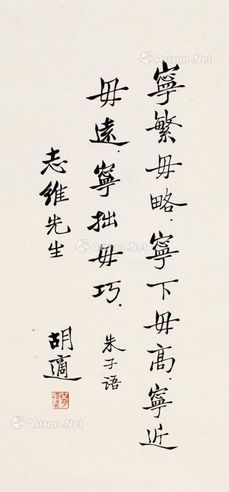 寧繁毋略.寧下毋高.寧近
毋遠.寧拙毋巧.
朱子语
志維先生
胡適
Artron.Net
Artron.Net
Artron.Net
Artron.Net